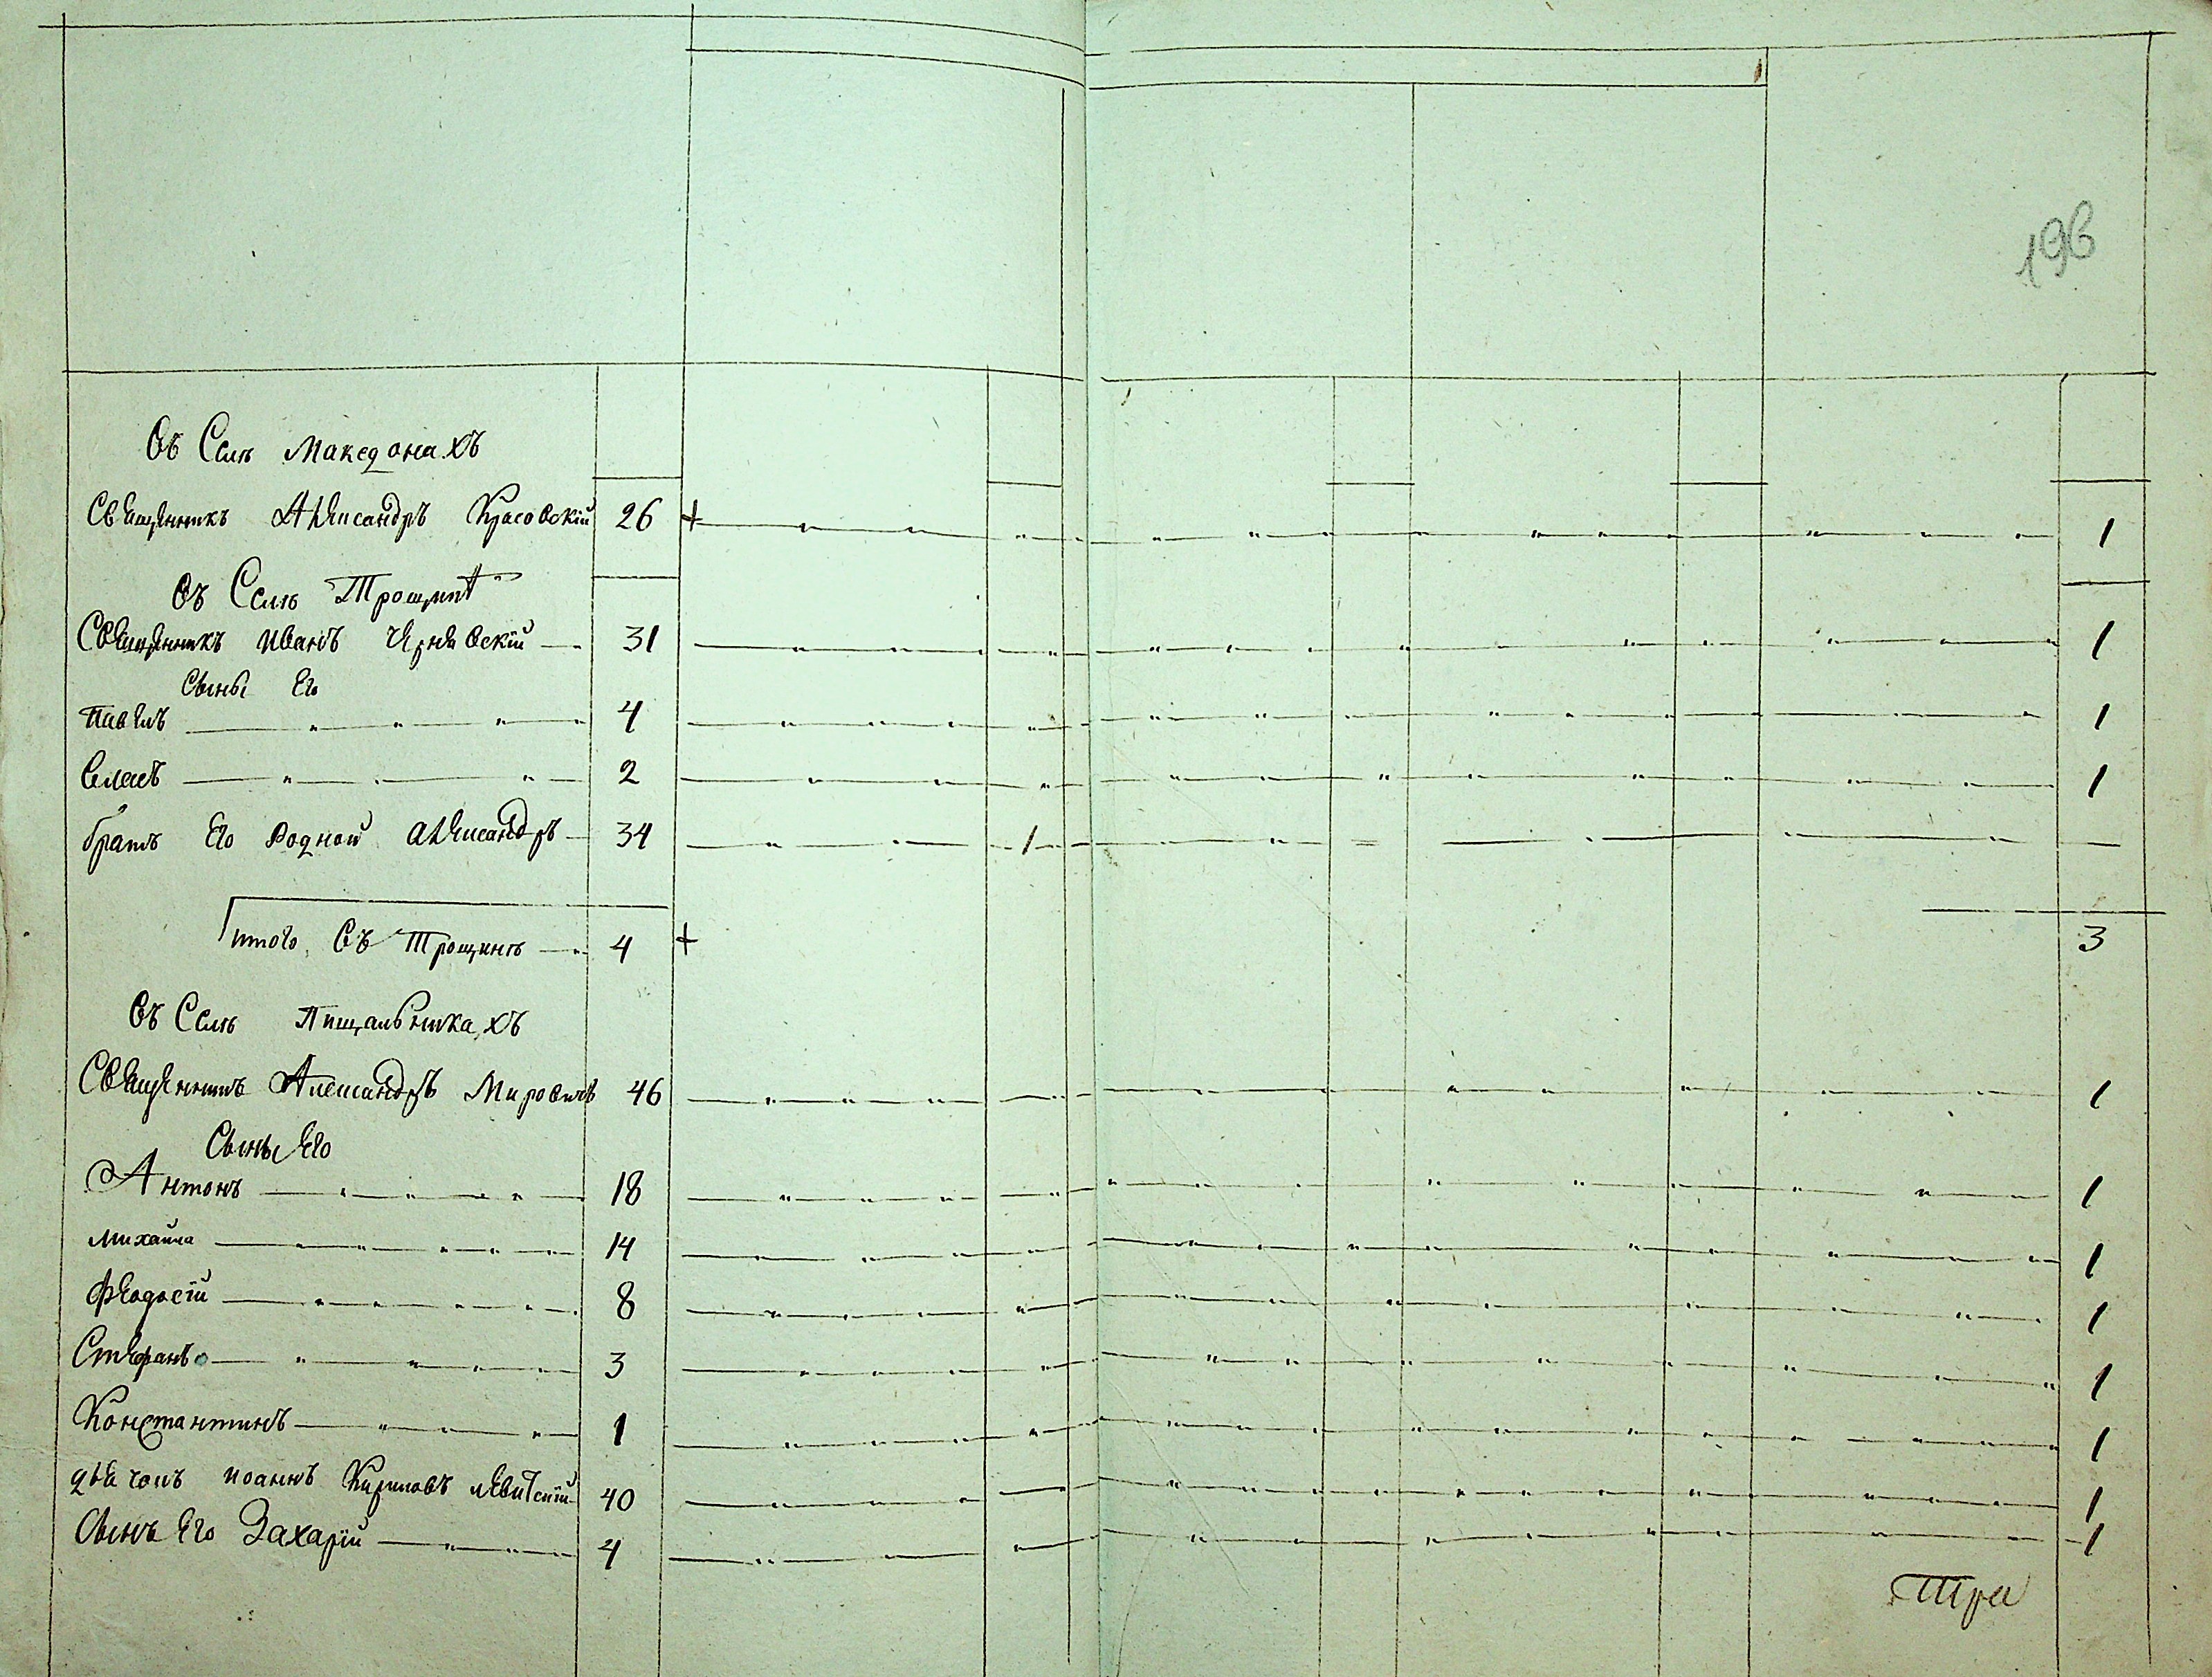 196
Въ Селѣ Македонахъ
Священникъ Александръ Красовскій 26 + 1
Въ Селѣ Трощинѣ
Священникъ Иванъ Чернявскій 31 1
Сыны Его
Павелъ 4 1
2 1
братъ Его Родной Александръ 34 1
итого Въ Трощинѣ 4 + 3
Въ Селѣ Пищальникахъ
Священникъ Александръ Мировичъ 46 1
Сыны Его
Антонъ 18 1
Михаила 14 1
Феодосій 8 1
Стефанъ 3 1
Константинъ 1 1
дьячокъ Иоаннъ Кириловъ Левитскій 40 1
Сынъ Его Захарій 4 1